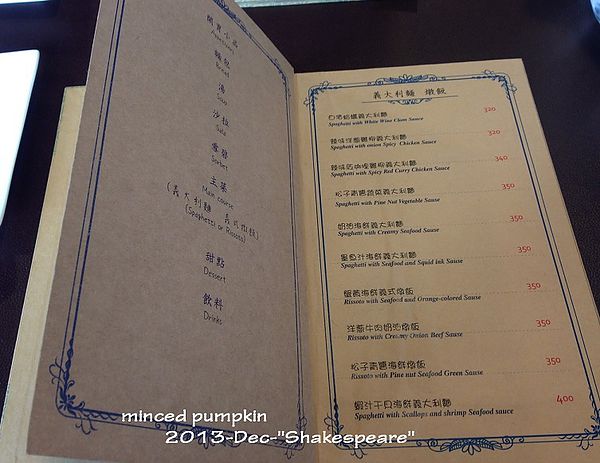 開胃小品
Appetizers
麵包
Bread
湯
Soup
沙拉
Sala
雪碧
Sorbet
主菜
Main course
(義大利麵 義式燉飯)
(Spaghetti or Rissoto)
甜點
Dessert
飲料
Drinks
義大利麵 燉飯
白酒蛤蠣義大利麵 320
Spaghetti with White Wine Clam Sauce
辣味洋蔥雞柳義大利麵 320
Spaghetti with onion Spicy Chicken Sauce
辣味紅咖哩雞柳義大利麵 340
Spaghetti with Spicy Red Curry Chicken Sauce
松子青醬蔬菜義大利麵 350
Spaghetti with Pine Nut Vegetable Sauce
奶油海鮮義大利麵 350
Spaghetti with Creamy Seafood Sauce
墨魚汁海鮮義大利麵 350
Spaghetti with Seafood and Squid ink Sauce
蟹黃海鮮義式燉飯 350
Rissoto with Seafood and Orange-colored Sauce
洋蔥牛肉奶油燉飯 350
Rissoto with Creamy Onion Beef Sauce
松子青醬海鮮燉飯 350
Rissoto with Pine nut Seafood Green Sauce
蝦汁干貝海鮮義大利麵 400
Spaghetti with Scallops and shrimp Seafood sauce
minced pumpkin
2013-Dec-"Shakespeare"